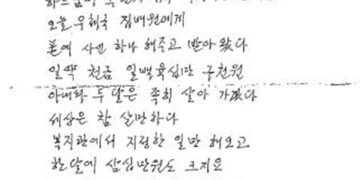 오늘 우체국 집배원에게
폰에 사연 하나 해주고 받아 왔다
일약 천금 일백육십만 구천원
아내와 두 달은 족히 살아 가겠다
세상은 참 살만하다
복지관에서 지정한 일만 해오고
한달에 삼십만원도 크지요